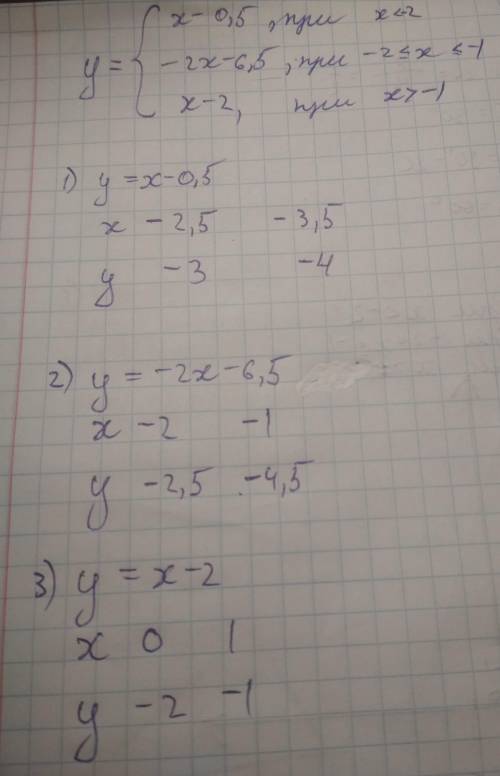 y = { x - 0,5 , при x < 2
-2x - 6,5 , при -2 ≤ x ≤ -1
x - 2, при x > -1
1) y = x - 0,5
x -2,5 -3,5
y -3 -4
2) y = -2x - 6,5
x -2 -1
y -2,5 -4,5
3) y = x - 2
x 0 1
y -2 -1